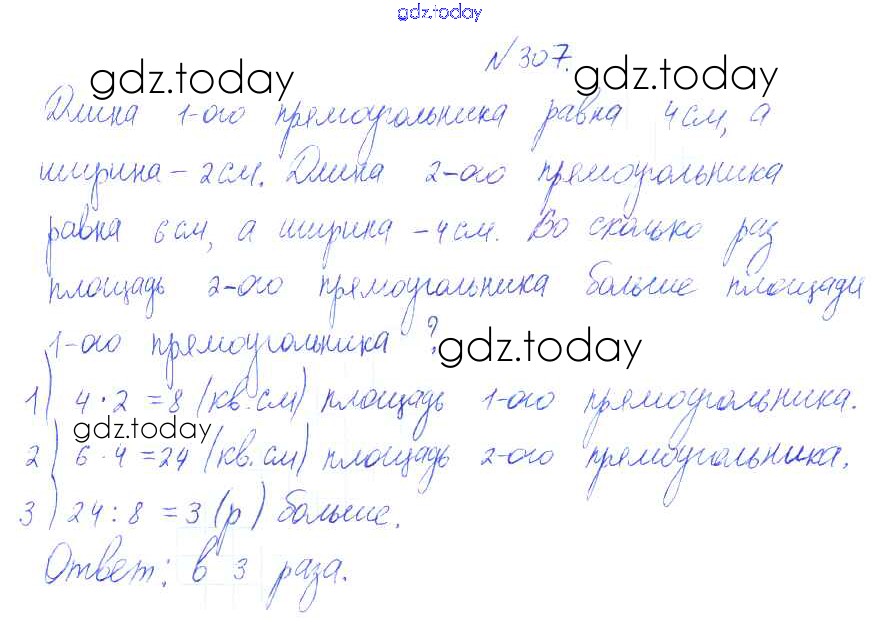 gdz.today
№ 307.
gdz.today gdz.today
Длина 1-ого прямоугольника равна 4 см, а
ширина - 2 см. Длина 2-ого прямоугольника
равна 6 см, а ширина - 4 см. Во сколько раз
площадь 2-ого прямоугольника больше площади
1-ого прямоугольника ?
gdz.today
1) 4 · 2 = 8 (кв. см) площадь 1-ого прямоугольника.
gdz.today
2) 6 · 4 = 24 (кв. см) площадь 2-ого прямоугольника.
3) 24 : 8 = 3 (р) больше.
Ответ: в 3 раза.